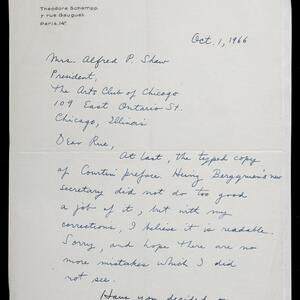 Theodore Schempp
7 rue Gauguet
Paris, 14ᵉ
Oct. 1, 1966
Mrs. Alfred P. Shaw
President,
The Arts Club of Chicago
109 East Ontario St.
Chicago, Illinois
Dear Rue,
At last, the typed copy
of Courtin preface. Heinz Berggruen's new
secretary did not do too good
a job of it, but with my
corrections, I believe it is readable.
Sorry, and hope there are no
more mistakes which I did
not see.
Have you decided